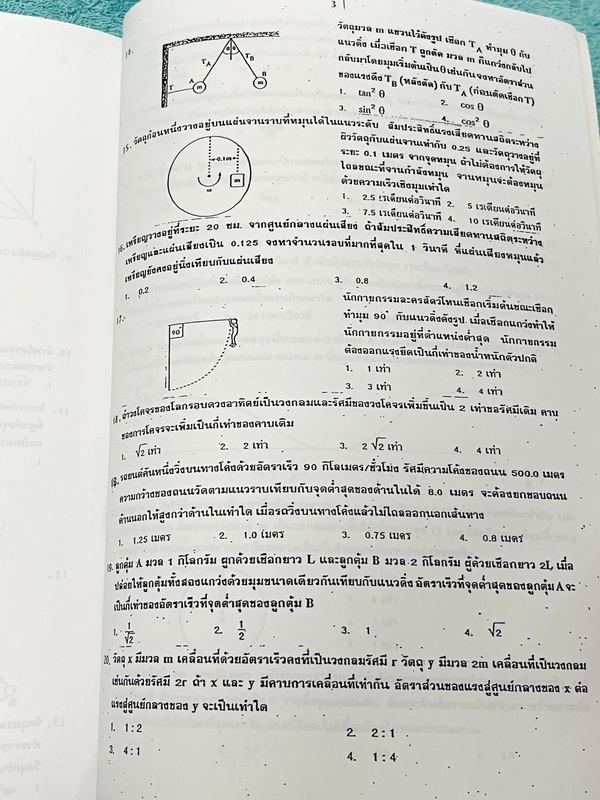 3
วัตถุมวล m แขวนไว้ดังรูป เชือก TA ทำมุม θ กับ
แนวดิ่ง เมื่อเชือก T ถูกตัด มวล m ก็แกว่งกลับไป
กลับมาโดยมุมเริ่มต้นเป็น θ เช่นกัน จงหาอัตราส่วน
ของแรงดึง TB (หลังตัด) กับ TA (ก่อนตัดเชือก T)
1. tan² θ 2. cos θ
3. sin² θ 4. cos² θ
θ θ
TA TB
T A m
B m
15. วัตถุก้อนหนึ่งวางอยู่บนแผ่นจานราบที่หมุนได้ในแนวระดับ สัมประสิทธิ์แรงเสียดทานสถิตระหว่าง
ผิววัตถุกับแผ่นจานเท่ากับ 0.25 และวัตถุวางอยู่ที่
ระยะ 0.1 เมตร จากจุดหมุน ถ้าไม่ต้องการให้วัตถุ
ไถลขณะที่จานกำลังหมุน จานหมุนจะต้องหมุน
ด้วยความเร็วเชิงมุมเท่าใด
1. 2.5 เรเดียนต่อวินาที 2. 5 เรเดียนต่อวินาที
3. 7.5 เรเดียนต่อวินาที 4. 10 เรเดียนต่อวินาที
0.1m
m
16. เหรียญวางอยู่ที่ระยะ 20 ซม. จากศูนย์กลางแผ่นเสียง ถ้าสัมประสิทธิ์ความเสียดทานสถิตระหว่าง
เหรียญและแผ่นเสียงเป็น 0.125 จงหาจำนวนรอบที่มากที่สุดใน 1 วินาที ที่แผ่นเสียงหมุนแล้ว
เหรียญยังคงอยู่นิ่งเทียบกับแผ่นเสียง
1. 0.2 2. 0.4 3. 0.8 4. 1.2
17.
90°
นักกายกรรมละครสัตว์โหนเชือกเริ่มต้นขณะเชือก
ทำมุม 90° กับแนวดิ่งดังรูป เมื่อเชือกแกว่งทำให้
นักกายกรรมอยู่ที่ตำแหน่งต่ำสุด นักกายกรรม
ต้องออกแรงยึดเป็นกี่เท่าของน้ำหนักตัวปกติ
1. 1 เท่า 2. 2 เท่า
3. 3 เท่า 4. 4 เท่า
18. ถ้าวงโคจรของโลกรอบดวงอาทิตย์เป็นวงกลมและรัศมีของวงโคจรเพิ่มขึ้นเป็น 2 เท่าของรัศมีเดิม คาบ
ของการโคจรจะเพิ่มเป็นกี่เท่าของคาบเดิม
1. √2 เท่า 2. 2 เท่า 3. 2 √2 เท่า 4. 4 เท่า
รถยนต์คันหนึ่งวิ่งบนทางโค้งด้วยอัตราเร็ว 90 กิโลเมตร/ชั่วโมง รัศมีความโค้งของถนน 500.0 เมตร
ความกว้างของถนนวัดตามแนวราบเทียบกับจุดต่ำสุดของด้านในได้ 8.0 เมตร จะต้องยกขอบถนน
ด้านนอกให้สูงกว่าด้านในเท่าใด เมื่อรถวิ่งบนทางโค้งแล้วไม่ไถลออกนอกเส้นทาง
1. 1.25 เมตร 2. 1.0 เมตร 3. 0.75 เมตร 4. 0.8 เมตร
19. ลูกตุ้ม A มวล 1 กิโลกรัม ผูกด้วยเชือกยาว L และลูกตุ้ม B มวล 2 กิโลกรัม ผู้ด้วยเชือกยาว 2L เมื่อ
ปล่อยให้ลูกตุ้มทั้งสองแกว่งด้วยมุมขนาดเดียวกันเทียบกับแนวดิ่ง อัตราเร็วที่จุดต่ำสุดของลูกตุ้ม A จะ
เป็นกี่เท่าของอัตราเร็วที่จุดต่ำสุดของลูกตุ้ม B
1. 1/√2 2. 1/2 3. 1 4. √2
20. วัตถุ x มีมวล m เคลื่อนที่ด้วยอัตราเร็วคงที่เป็นวงกลมรัศมี r วัตถุ y มีมวล 2m เคลื่อนที่เป็นวงกลม
เช่นกันด้วยรัศมี 2r ถ้า x และ y มีคาบการเคลื่อนที่เท่ากัน อัตราส่วนของแรงสู่ศูนย์กลางของ x ต่อ
แรงสู่ศูนย์กลางของ y จะเป็นเท่าใด
1. 1:2 2. 2:1
3. 4:1 4. 1:4